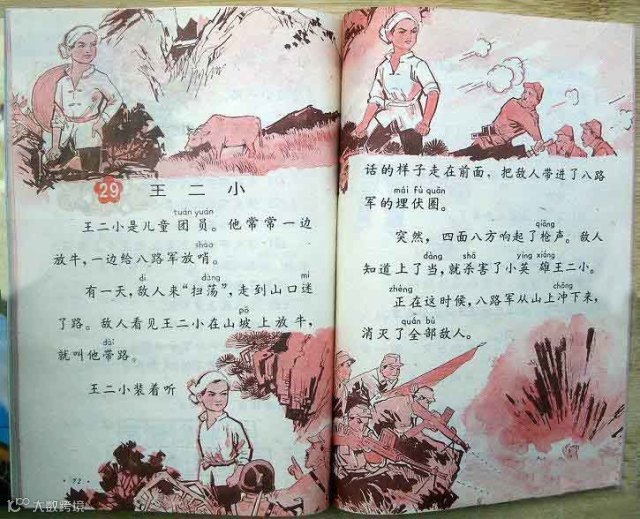 29 王二小
tuán yuán
王二小是儿童团员。他常常一边
shào
放牛,一边给八路军放哨。
dí dàng mí
有一天,敌人来“扫荡”,走到山口迷
pō
了路。敌人看见王二小在山坡上放牛,
dài
就叫他带路。
王二小装着听
·72·
话的样子走在前面,把敌人带进了八路
mái fú quān
军的埋伏圈。
qiāng
突然,四面八方响起了枪声。敌人
dàng shā yīng xióng
知道上了当,就杀害了小英雄王二小。
zhèng chōng
正在这时候,八路军从山上冲下来,
quán bù
消灭了全部敌人。
大数跨境